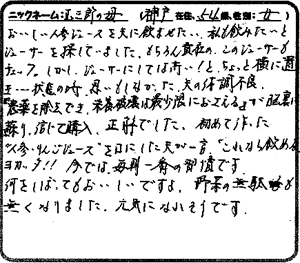 ニックネーム: 三郎の母 (神戸 在住、54歳、性別: 女)
おいしい人参ジュースを夫に飲ませたい、私も飲みたいと
ジューサーを探していました。もちろん貴社の、このジューサーも
チェック。しかし、ジューサーにしては高い!と、ちょっと横に置
き… 状態の時、思いもしなかった夫の体調不良。
"農薬を除去でき、栄養破壊は最少限におさえる"が脳裏に
蘇り、信じて購入。正解でした。初めて作った
"人参りんごジュース"を口にした夫が一言、"これなら飲める、
ヨカッタ"!!今では、毎朝一番の習慣です。
何をしぼってもおいしいですよ。野菜の無駄も
無くなりました。元気になれそうです。